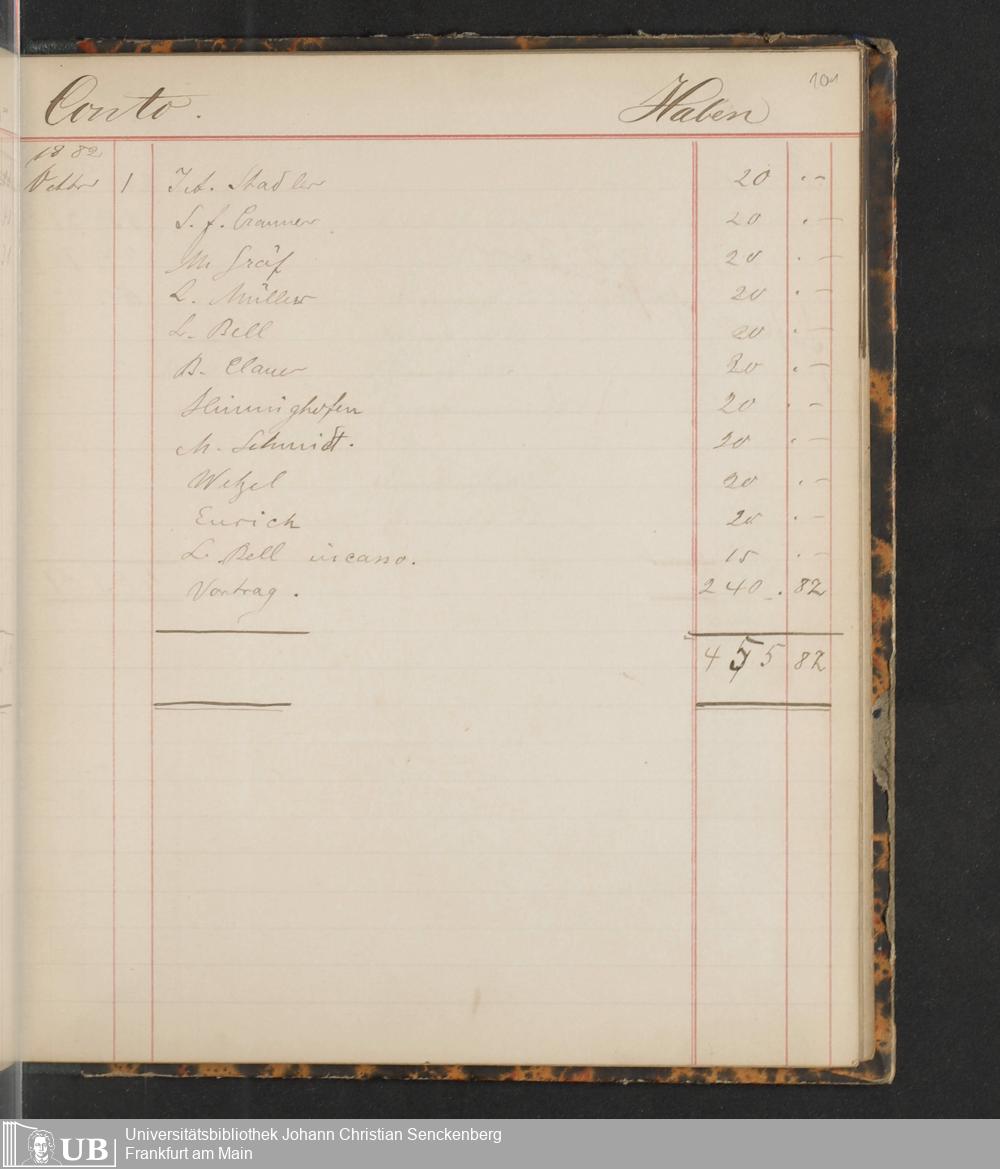 101
Conto. Haben
1882
Oktbr 1 Jct. Stadler 20 . -
S. f. Crammer 20 . -
M. Gräf 20 . -
L. Müller 20 . -
L. Bell 20 . -
B. Clauer 20 . -
Slimminghofen 20 . -
M. Schmidt. 20 . -
Wetzel 20 . -
Eurich 20 . -
L. Bell incasso. 15 . -
Vortrag. 240 . 82
455 82
UB
Universitätsbibliothek Johann Christian Senckenberg
Frankfurt am Main